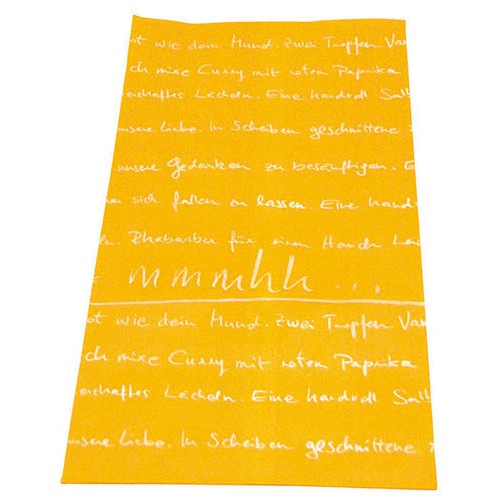 ot wie dein Mund. Zwei Tropfen Van
ch mixe Curry mit rotem Paprika
enhaftes Lächeln. Eine handvoll Salb
unsere Liebe. In Scheiben geschnittene
unsere Gedanken zu besänftigen. E
um sich fallen zu lassen. Eine hand
n. Rhabarber für einen Hauch Le
mmmhh...
ot wie dein Mund. Zwei Tropfen Van
ch mixe Curry mit rotem Paprika
enhaftes Lächeln. Eine handvoll Salb
unsere Liebe. In Scheiben geschnittene